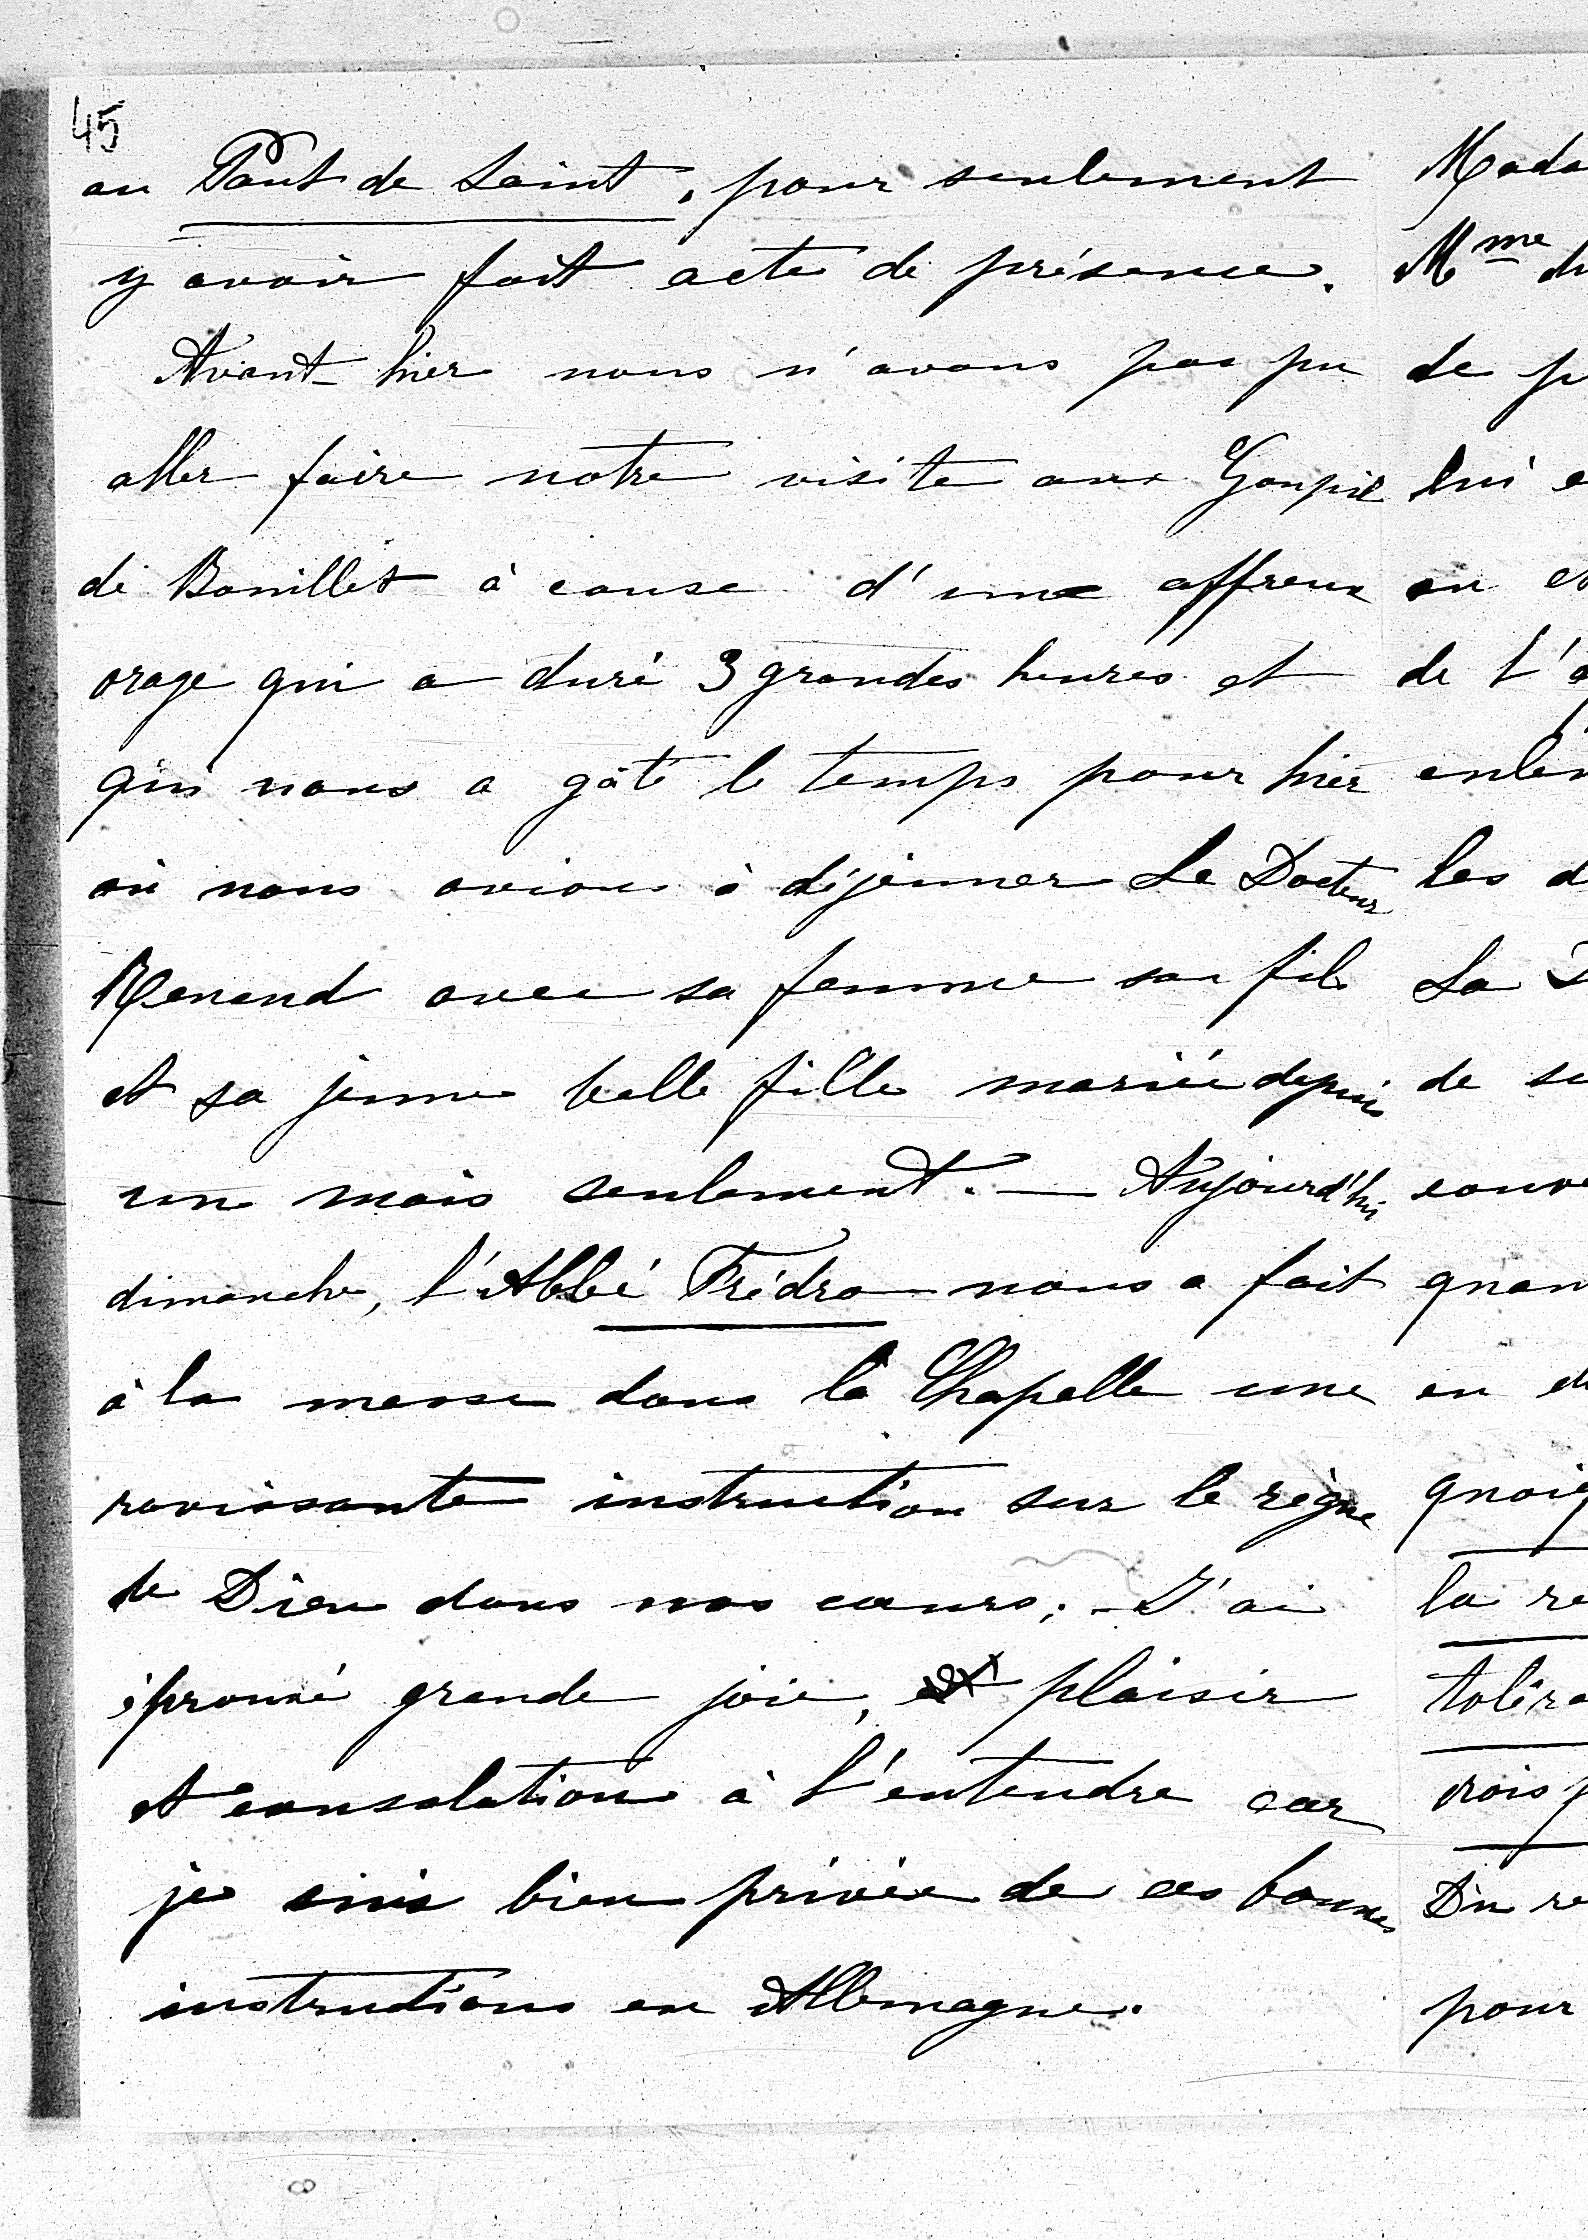 45
au Pont de Saint, pour seulement
y avoir fait acte de présence.
Avant-hier nous n'avons pas pu
aller faire notre visite aux Goupil
de Bouillet à cause d'une affreux
orage qui a duré 3 grandes heures et
qui nous a gâté le temps pour hier
où nous avions à déjeuner Le Docteur
Renaud avec sa femme son fils
et sa jeune belle fille mariée depuis
un mois seulement. — Aujourd'hui
dimanche, l'Abbé Frédro nous a fait
à la messe dans la Chapelle une
ravissante instruction sur le règne
de Dieu dans nos cœurs; - J'ai
éprouvé grande joie, plaisir
et consolation à l'entendre car
je suis bien privée de ces bonnes
instructions en Allemagne.
Mada
Mme
de p
lui e
de l'a
les d
La
de
quan
en
quoiq
la re
toléra
Du re
pour